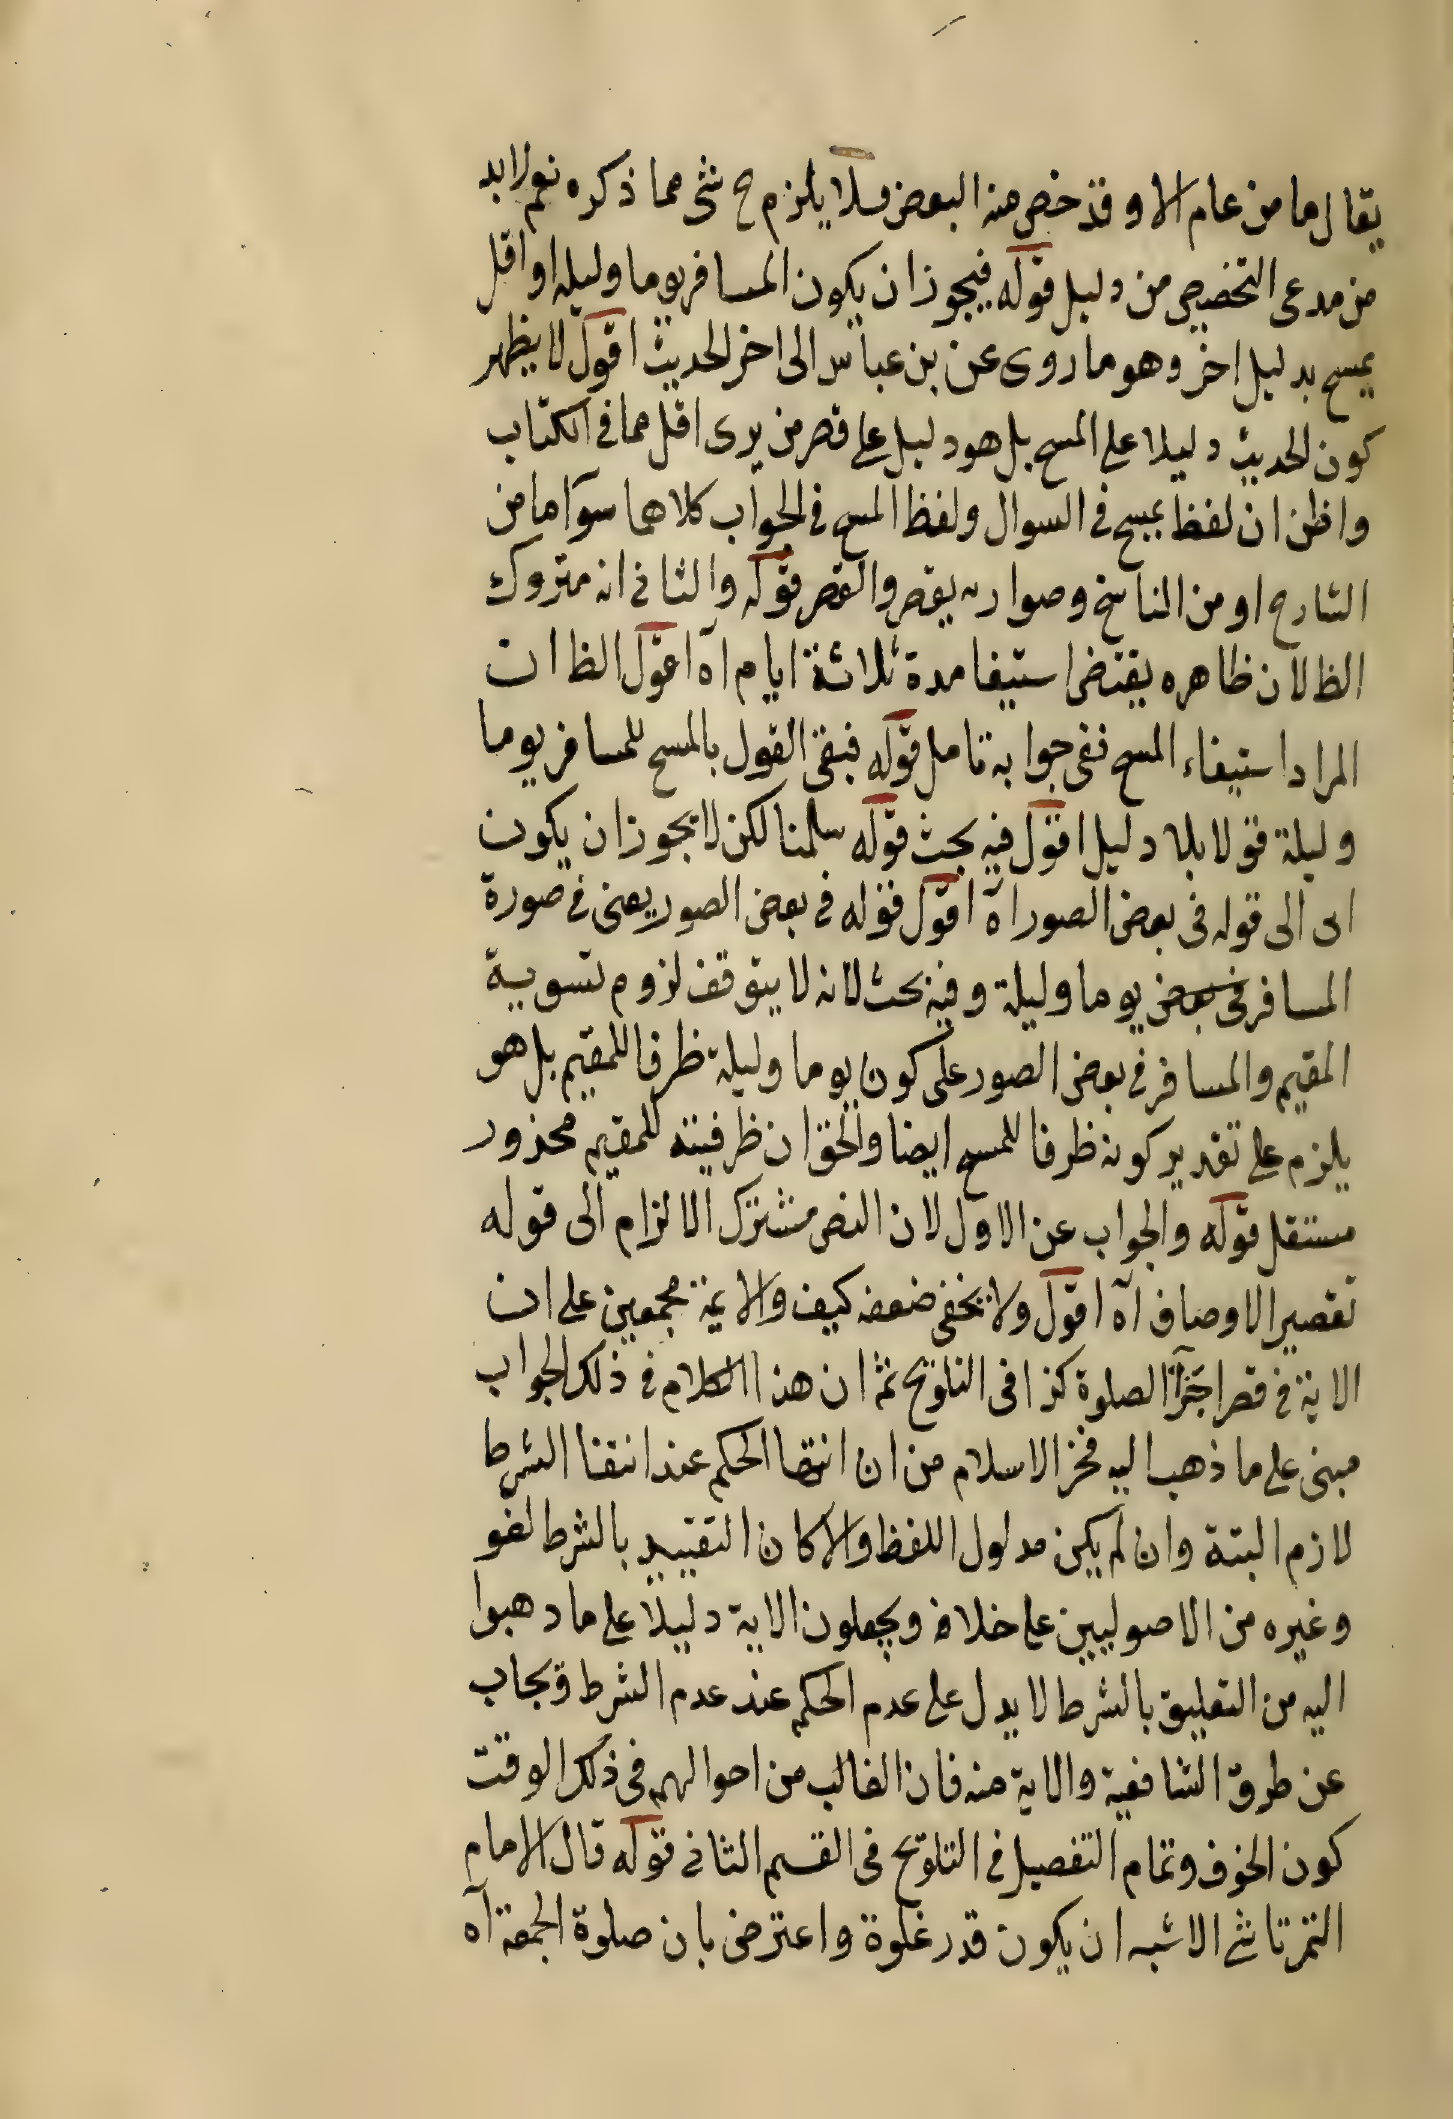 يقال ما من عام الا وقد خص منه البعض فلا يلزم ح شئ مما ذكره نعم لا بد
من مدعى التخصيص من دليل قوله فيجوز ان يكون المسافر يوما وليله او اقل
يمسح بدليل اخر وهو ما روى عن بن عباس الى اخر الحديث اقول لا يظهر
كون الحديث دليلا على المسح بل هو دليل على قصر من يرى اقل مما فى الكتاب
واظن ان لفظ يمسح فى السوال ولفظ المسح فى الجواب كلاهما سوآ اما من
الشارح او من الناسخ وصوابه يقصر والقصر قوله والثانى انه متروك
الظ لان ظاهره يقتضى استيفا مدة ثلاثة ايام اه اقول الظ ان
المراد استيفاء المسح ففى جوابه تامل قوله فبقى القول بالمسح للمسافر يوما
وليلة قولا بلا دليل اقول فيه بحث قوله سلمنا لكن لا يجوز ان يكون
اى الى قوله فى بعض الصور اه اقول قوله فى بعض الصور يعنى فى صورة
المسافر فى بعض يوما وليلة وفيه بحث لانه لا يتوقف لزوم تسوية
المقيم والمسافر فى بعض الصور على كون يوما وليلة ظرفا للمقيم بل هو
يلزم على تقدير كونه ظرفا للمسح ايضا والحق ان ظرفيته للمقيم محذور
مستقل قوله والجواب عن الاول لان النص مشترك الالزام الى قوله
تقصير الاوصاف اه اقول ولا يخفى ضعفه كيف والايمة مجمعين على ان
الاية فى قصر اجزآ الصلوة كذا فى التلويح ثم ان هذا الكلام فى ذلك الجواب
مبنى على ما ذهب اليه فخر الاسلام من ان انتفا الحكم عند انتفا الشرط
لازم البتة وان لم يكن مدلول اللفظ والا كان التقييد بالشرط لغو
وغيره من الاصوليين على خلافه ويجعلون الاية دليلا على ما دهبوا
اليه من التعليق بالشرط لا يدل على عدم الحكم عند عدم الشرط ويجاب
عن طرق الشافعية والاية منه فان الغالب من احوالهم فى ذلك الوقت
كون الخوف وتمام التفصيل فى التلويح فى القسم الثانى قوله قال الامام
التمرتاشى الاشبه ان يكون قدر غلوة واعترض بان صلوة الجمعة اه